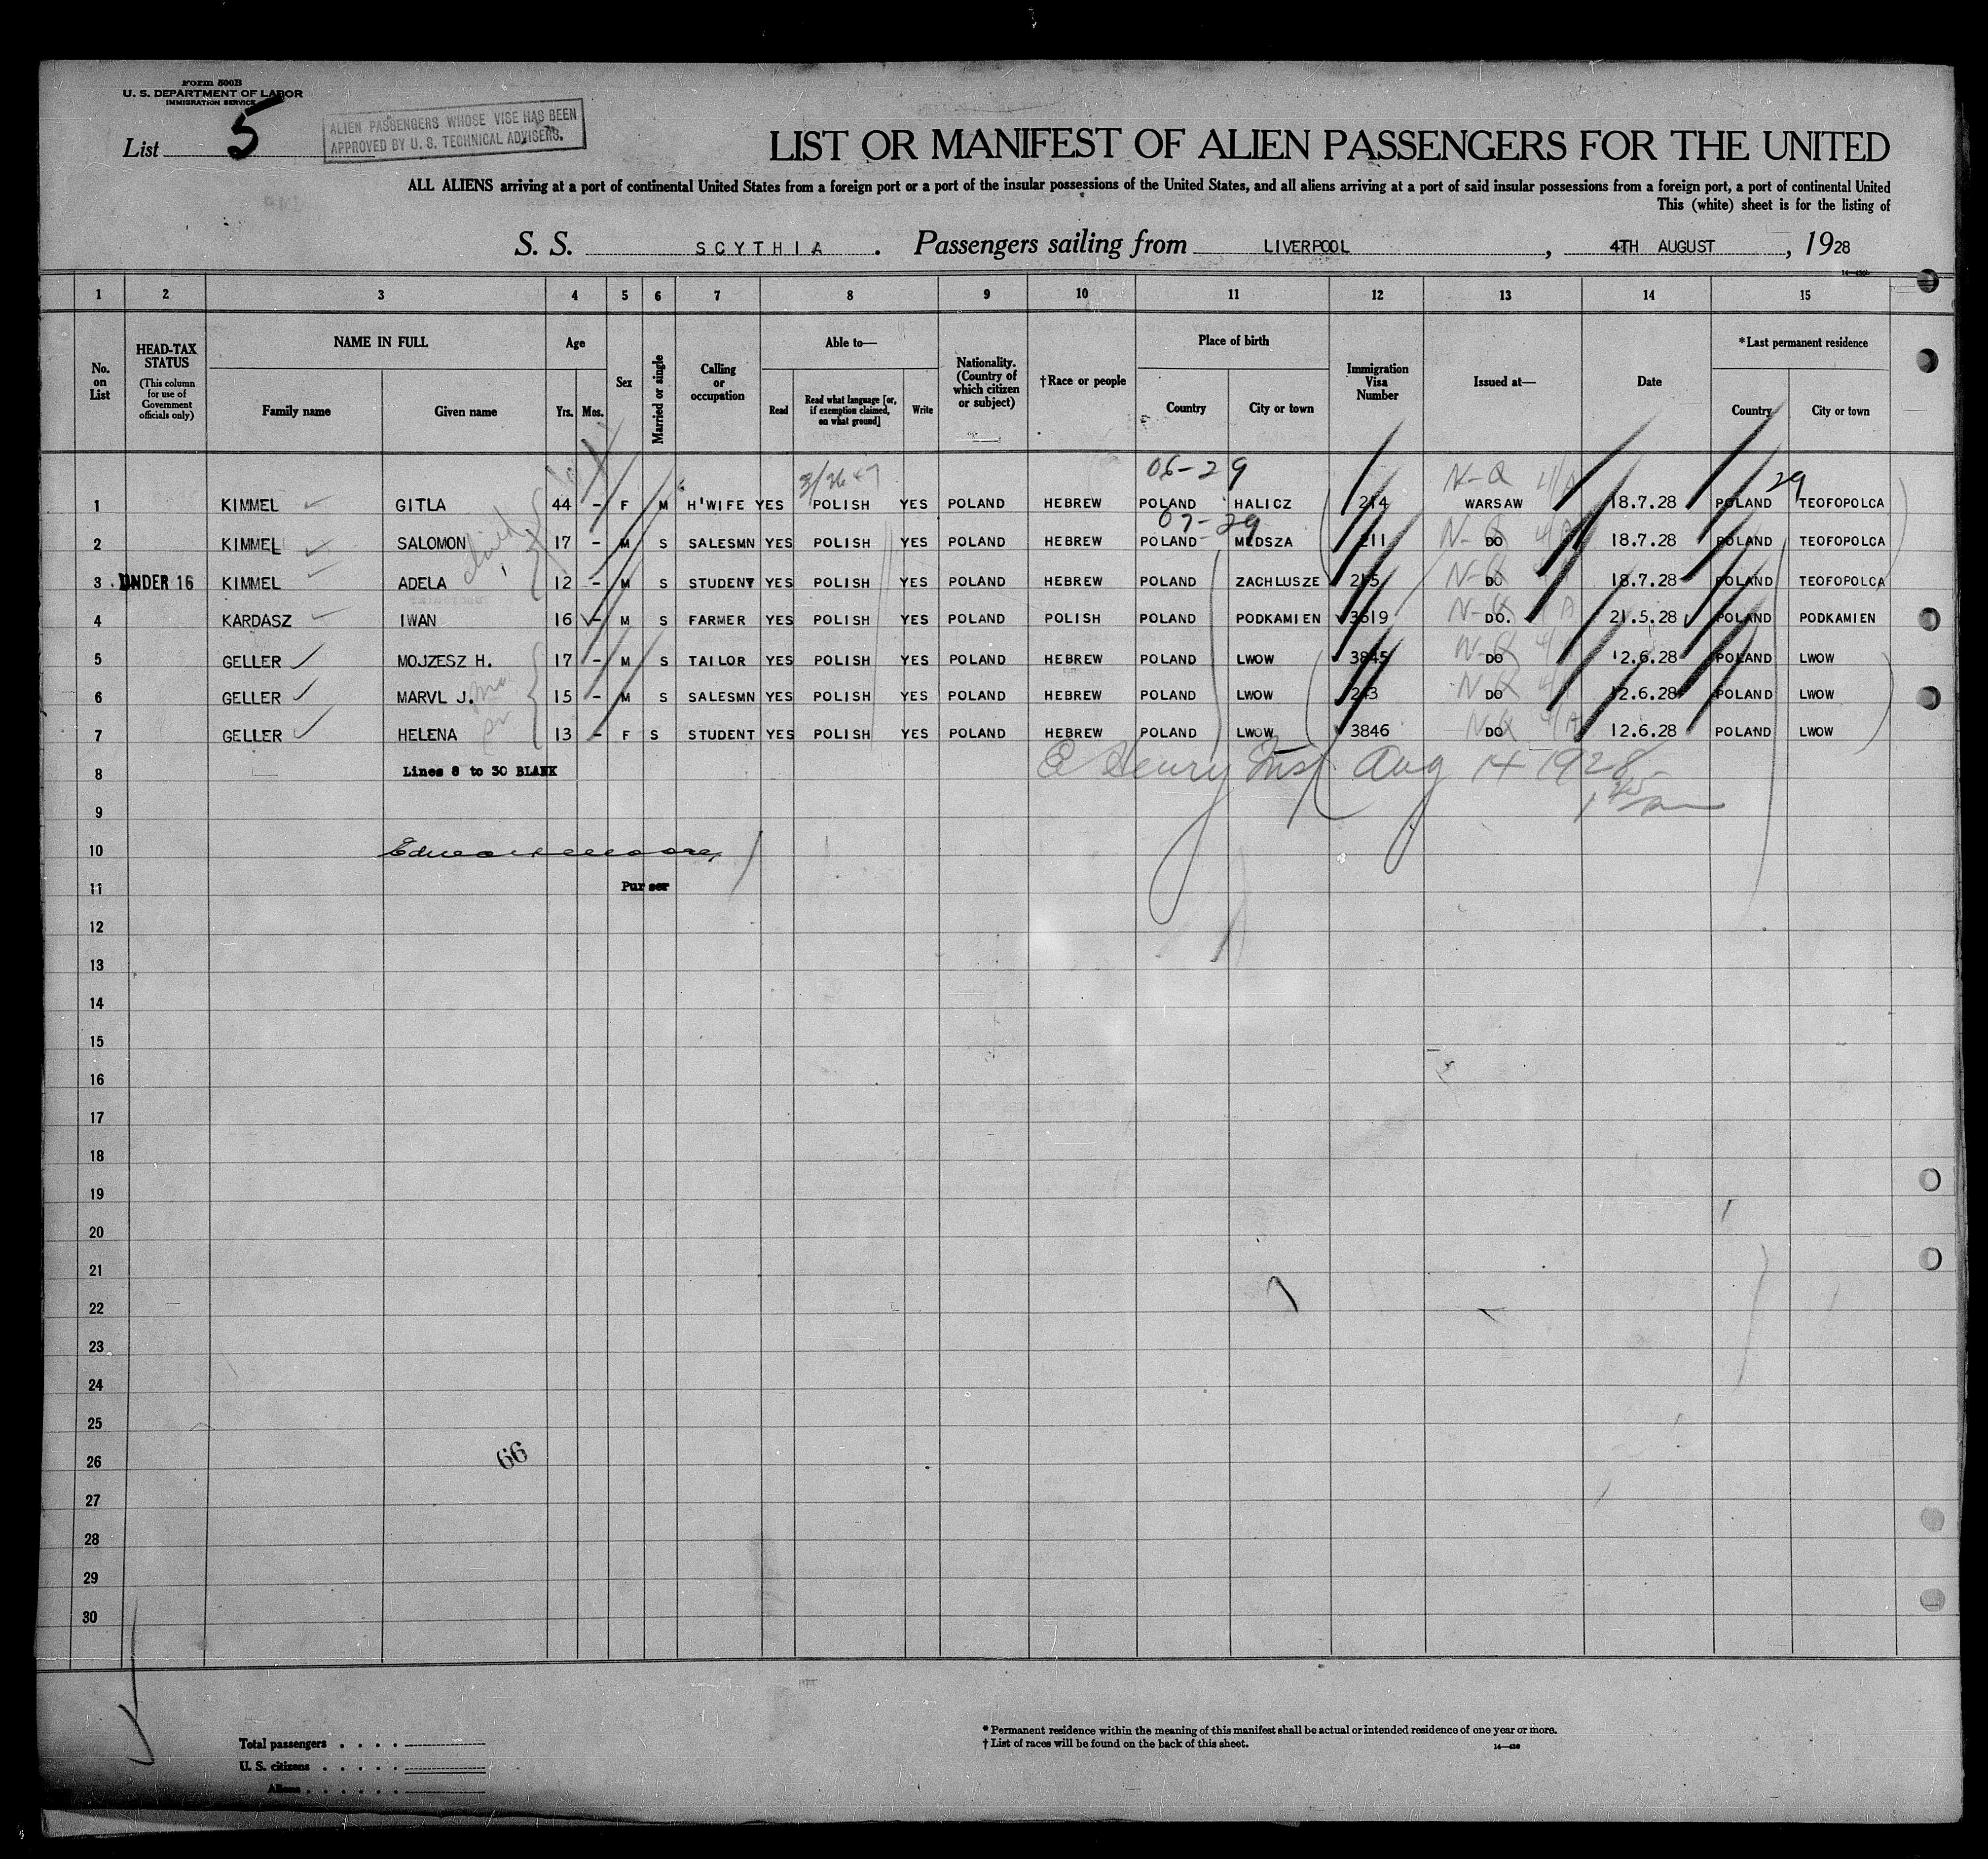 Form 500B
U. S. DEPARTMENT OF LABOR
IMMIGRATION SERVICE
List 5
ALIEN PASSENGERS WHOSE VISE HAS BEEN
APPROVED BY U. S. TECHNICAL ADVISERS.
LIST OR MANIFEST OF ALIEN PASSENGERS FOR THE UNITED
ALL ALIENS arriving at a port of continental United States from a foreign port or a port of the insular possessions of the United States, and all aliens arriving at a port of said insular possessions from a foreign port, a port of continental United
This (white) sheet is for the listing of
S. S. SCYTHIA. Passengers sailing from LIVERPOOL, 4TH AUGUST, 1928
1 2 3 4 5 6 7 8 9 10 11 12 13 14 15
No. on List
HEAD-TAX STATUS (This column for use of Government officials only)
NAME IN FULL
Family name Given name
Age
Yrs. Mos.
Sex
Married or single
Calling or occupation
Able to—
Read Read what language [or, if exemption claimed, on what ground] Write
Nationality. (Country of which citizen or subject)
†Race or people
Place of birth
Country City or town
Immigration Visa Number
Issued at—
Date
*Last permanent residence
Country City or town
06-29 N-Q 4/A 29
1 KIMMEL GITLA 44 - F M H'WIFE YES POLISH YES POLAND HEBREW POLAND HALICZ 214 WARSAW 18.7.28 POLAND TEOFOPOLCA
07-29
2 KIMMEL SALOMON 17 - M S SALESMN YES POLISH YES POLAND HEBREW POLAND MEDSZA 211 DO 18.7.28 POLAND TEOFOPOLCA
3 UNDER 16 KIMMEL ADELA 12 - M S STUDENT YES POLISH YES POLAND HEBREW POLAND ZACHLUSZE 215 DO 18.7.28 POLAND TEOFOPOLCA
4 KARDASZ IWAN 16 - M S FARMER YES POLISH YES POLAND POLISH POLAND PODKAMIEN 3619 DO. 21.5.28 POLAND PODKAMIEN
5 GELLER MOJZESZ H. 17 - M S TAILOR YES POLISH YES POLAND HEBREW POLAND LWOW 3845 DO 12.6.28 POLAND LWOW
6 GELLER MARVL J. 15 - M S SALESMN YES POLISH YES POLAND HEBREW POLAND LWOW 243 DO 12.6.28 POLAND LWOW
7 GELLER HELENA 13 - F S STUDENT YES POLISH YES POLAND HEBREW POLAND LWOW 3846 DO 12.6.28 POLAND LWOW
8 Lines 8 to 30 BLANK E Henry Insp Aug 14 1928
9
10
11 Purser
12
13
14
15
16
17
18
19
20
21
22
23
24
25
26 66
27
28
29
30
Total passengers
U. S. citizens
Aliens
*Permanent residence within the meaning of this manifest shall be actual or intended residence of one year or more.
†List of races will be found on the back of this sheet.